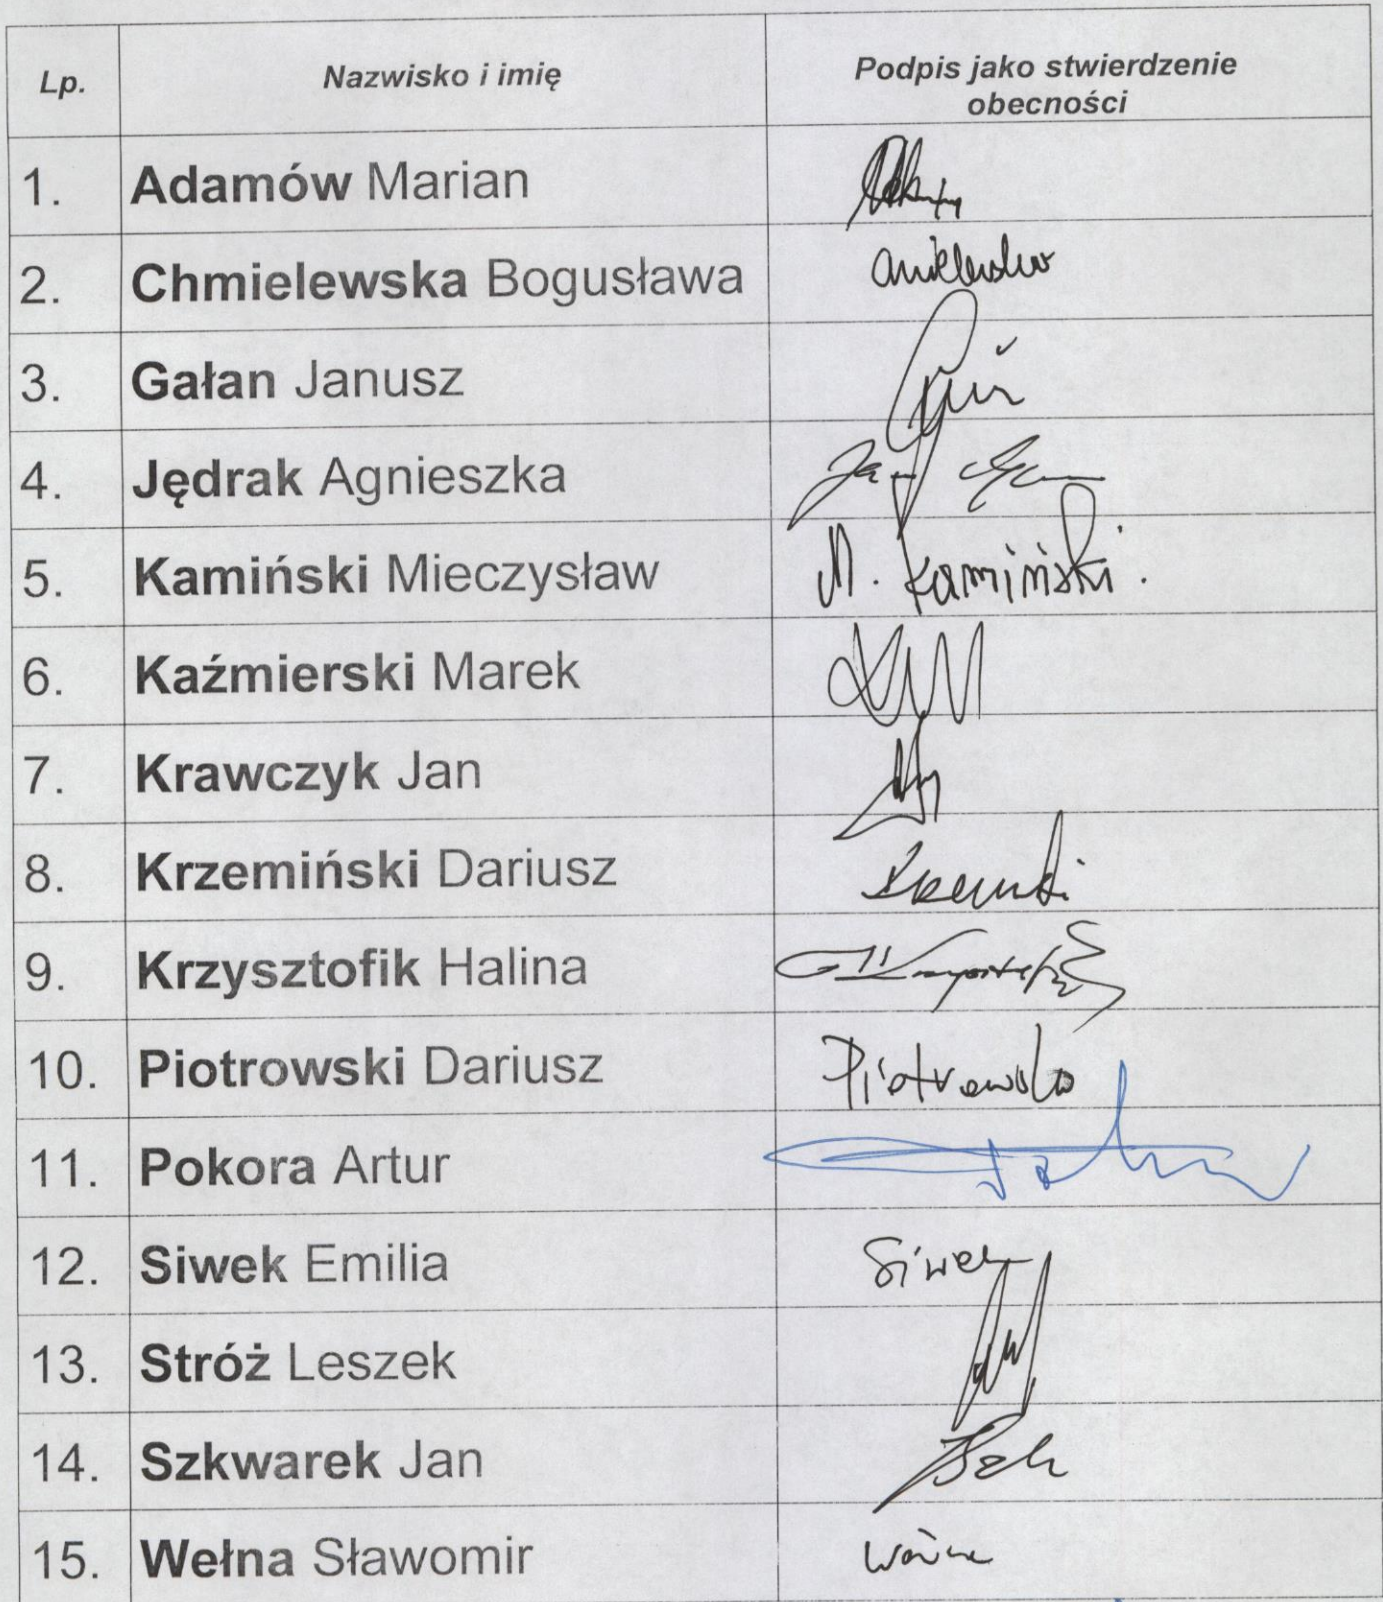 Lp. Nazwisko i imię Podpis jako stwierdzenie
obecności
1. Adamów Marian
2. Chmielewska Bogusława
3. Gałan Janusz
4. Jędrak Agnieszka
5. Kamiński Mieczysław M. Kamiński.
6. Kaźmierski Marek
7. Krawczyk Jan
8. Krzemiński Dariusz
9. Krzysztofik Halina
10. Piotrowski Dariusz
11. Pokora Artur
12. Siwek Emilia Siwek
13. Stróż Leszek
14. Szkwarek Jan
15. Wełna Sławomir